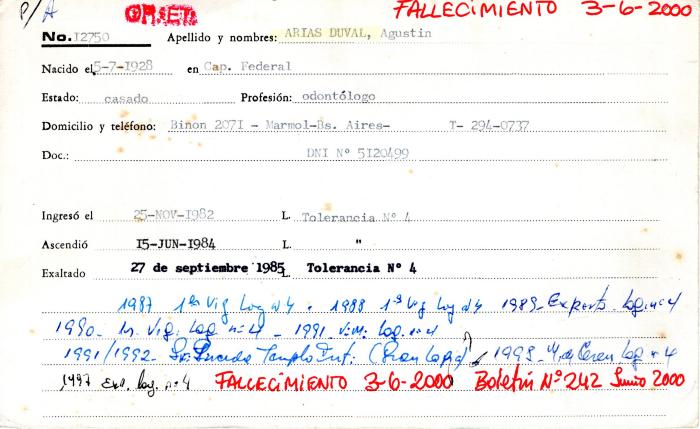 P/A
FALLECIMIENTO 3-6-2000
No. I2750 Apellido y nombres: ARIAS DUVAL, Agustin
Nacido el 5-7-1928 en Cap. Federal
Estado: casado Profesión: odontólogo
Domicilio y teléfono: Binon 207I - Marmol-Bs. Aires- T- 294-0737
Doc.: DNI Nº 5I20499
Ingresó el 25-NOV-I982 L. Tolerancia Nº 4
Ascendió I5-JUN-I984 L. "
Exaltado 27 de septiembre 1985 L. Tolerancia Nº 4
1987 1er Vig Log nº 4 - 1988 1er Vig Log nº 4 1989- Experto Log. nº 4
1990- Vig. Log nº 4 - 1991 V.M. Log. nº 4
1991/1992- Templo Int. (Gran Logia) 1993- Log nº 4
1997 Exp. Log. nº 4 FALLECIMIENTO 3-6-2000 Boletin Nº 242 Junio 2000